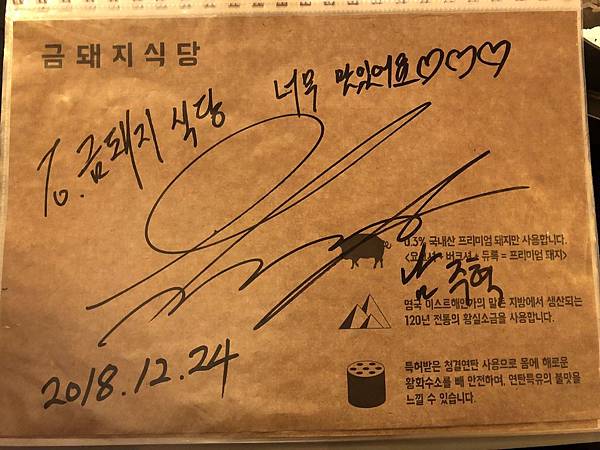 금돼지식당
너무 맛있어요♡♡♡
To. 금돼지 식당
0.3% 국내산 프리미엄 돼지만 사용합니다.
<요크셔 + 버크셔 + 듀록 = 프리미엄 돼지>
남주혁
영국 이스트해안가의 말돈 지방에서 생산되는
120년 전통의 황실소금을 사용합니다.
특허받은 청결연탄 사용으로 몸에 해로운
황화수소를 빼 안전하며, 연탄특유의 불맛을
느낄 수 있습니다.
2018.12.24